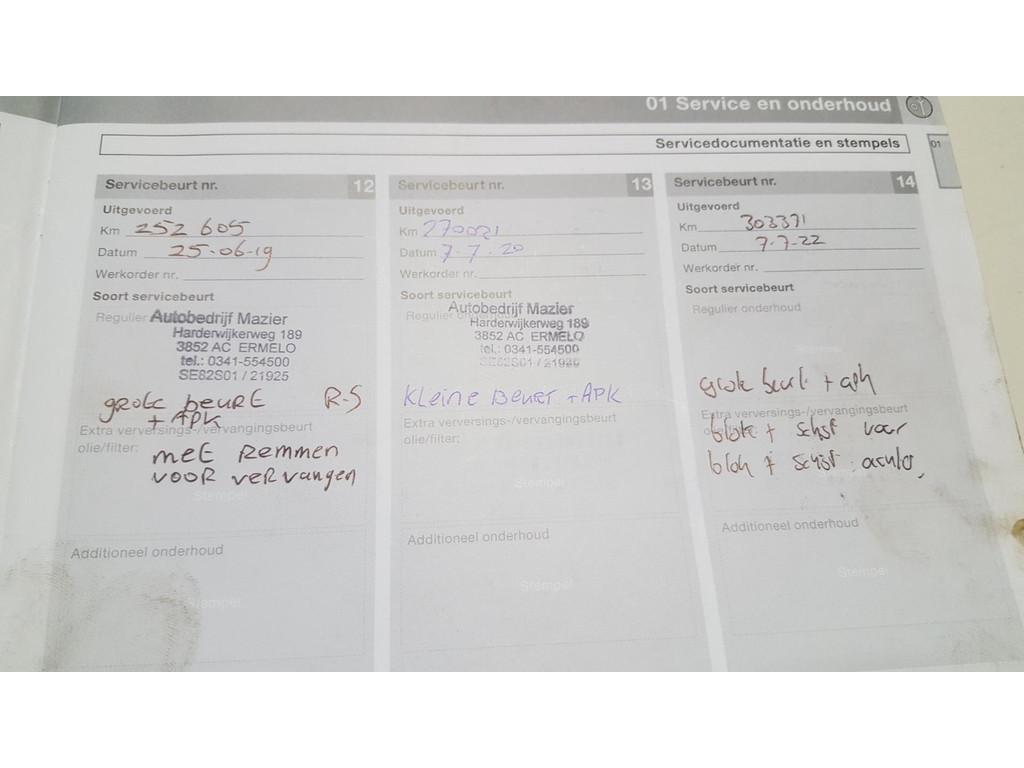 01 Service en onderhoud
01
Servicedocumentatie en stempels
Servicebeurt nr. 12
Uitgevoerd
Km 252 605
Datum 25-06-19
Werkorder nr.
Soort servicebeurt
Regulier
Autobedrijf Mazier
Harderwijkerweg 189
3852 AC ERMELO
tel.: 0341-554500
SE82S01 / 21925
grote beurt R-S
+ APK
Extra verversings-/vervangingsbeurt
olie/filter:
met Remmen
voor vervangen
Stempel
Additioneel onderhoud
Stempel
Servicebeurt nr. 13
Uitgevoerd
Km 270021
Datum 7-7-20
Werkorder nr.
Soort servicebeurt
Regulier onderhoud
Autobedrijf Mazier
Harderwijkerweg 189
3852 AC ERMELO
tel.: 0341-554500
SE82S01 / 21925
Kleine Beurt + APK
Extra verversings-/vervangingsbeurt
olie/filter:
Stempel
Additioneel onderhoud
Stempel
Servicebeurt nr. 14
Uitgevoerd
Km 303371
Datum 7-7-22
Werkorder nr.
Soort servicebeurt
Regulier onderhoud
Stempel
grote beurt + apk
Extra verversings-/vervangingsbeurt
+ schijf voor
blok + schijf
Additioneel onderhoud
Stempel